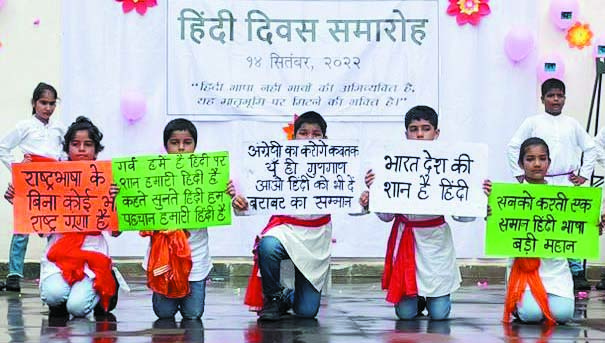 हिंदी दिवस समारोह
१४ सितंबर, २०२२
"हिंदी भाषा नहीं भावों की अभिव्यक्ति है,
यह मातृभूमि पर मिटने की भक्ति है।"
राष्ट्रभाषा के
बिना कोई भी
राष्ट्र गूंगा है
गर्व हमें है हिंदी पर
शान हमारी हिंदी है
कहते सुनते हिंदी हम
पहचान हमारी हिंदी है
अंग्रेजी का करोगे कबतक
यूँ ही गुणगान
आओ हिंदी को भी दें
बराबर का सम्मान
भारत देश की
शान है हिंदी
सबको करती एक
समान हिंदी भाषा
बड़ी महान